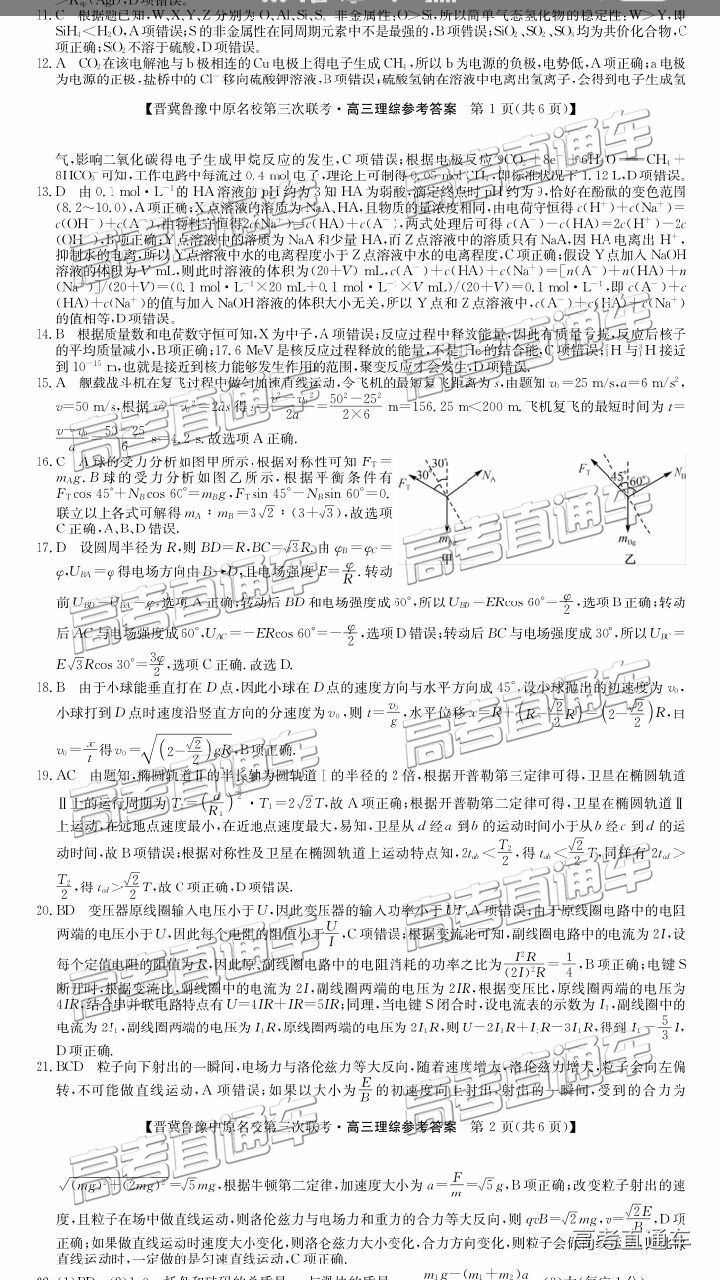 11. C 根据题已知,W、X、Y、Z 分别为 O、Al、Si、S。非金属性:O>Si,所以简单气态氢化物的稳定性:W>Y,即
SiH₄<H₂O,A 项错误;S 的非金属性在同周期元素中不是最强的,B 项错误;SiO₂、SO₂、SO₃ 均为共价化合物,C
项正确;SO₂ 不溶于硫酸,D 项错误。
12. A CO₂ 在该电解池与 b 极相连的 Cu 电极上得电子生成 CH₄,所以 b 为电源的负极,电势低,A 项正确;a 电极
为电源的正极,盐桥中的 Cl⁻ 移向硫酸钾溶液,B 项错误;硫酸氢钠在溶液中电离出氢离子,会得到电子生成氢
【晋冀鲁豫中原名校第三次联考·高三理综参考答案 第 1 页(共 6 页)】
气,影响二氧化碳得电子生成甲烷反应的发生,C 项错误;根据电极反应 9CO₂+8e⁻+6H₂O══CH₄+
8HCO₃⁻ 可知,工作电路中每流过 0.4 mol 电子,理论上可制得 0.05 mol CH₄,即标准状况下 1.12 L,D 项错误。
13. D 由 0.1 mol·L⁻¹ 的 HA 溶液的 pH 约为 3 知 HA 为弱酸,滴定终点时 pH 约为 9,恰好在酚酞的变色范围
(8.2~10.0),A 项正确;X 点溶液的溶质为 NaA、HA,且物质的量浓度相同,由电荷守恒得 c(H⁺)+c(Na⁺)=
c(OH⁻)+c(A⁻),由物料守恒得2c(Na⁺)=c(HA)+c(A⁻),两式处理后可得 c(A⁻)-c(HA)=2c(H⁺)-2c
(OH⁻),B 项正确;Y 点溶液中的溶质为 NaA 和少量 HA,而 Z 点溶液中的溶质只有 NaA,因 HA 电离出 H⁺,
抑制水的电离,所以 Y 点溶液中水的电离程度小于 Z 点溶液中水的电离程度,C 项正确;假设 Y 点加入 NaOH
溶液的体积为 V mL,则此时溶液的体积为(20+V) mL,c(A⁻)+c(HA)+c(Na⁺)=[n(A⁻)+n(HA)+n
(Na⁺)]/(20+V)=(0.1 mol·L⁻¹×20 mL+0.1 mol·L⁻¹×V mL)/(20+V)=0.1 mol·L⁻¹,即 c(A⁻)+c
(HA)+c(Na⁺)的值与加入 NaOH 溶液的体积大小无关,所以 Y 点和 Z 点溶液中,c(A⁻)+c(HA)+c(Na⁺)
的值相等,D 项错误。
14. B 根据质量数和电荷数守恒可知,X 为中子,A 项错误;反应过程中释放能量,因此有质量亏损,反应后核子
的平均质量减小,B 项正确;17.6 MeV 是核反应过程释放的能量,不是 He 的结合能,C 项错误;H 与 H 接近
到 10⁻¹⁵ m,也就是接近到核力能够发生作用的范围,聚变反应才会发生,D 项错误.
15. A 舰载战斗机在复飞过程中做匀加速直线运动,令飞机的最短复飞距离为 s,由题知 v₀=25 m/s,a=6 m/s²,
v=50 m/s,根据 v²-v₀²=2as 得 s=(v²-v₀²)/2a=(50²-25²)/(2×6) m=156.25 m<200 m. 飞机复飞的最短时间为 t=
(v-v₀)/a=(50-25)/6 s=4.2 s. 故选项 A 正确.
16. C A 球的受力分析如图甲所示,根据对称性可知 F_T=
m_A g. B 球的受力分析如图乙所示,根据平衡条件有
F_T cos 45°+N_B cos 60°=m_B g,F_T sin 45°-N_B sin 60°=0,
联立以上各式可解得 m_A:m_B=3√2:(3+√3),故选项
C 正确,A、B、D 错误.
F_T 30° 30° N_A m_A g 甲
F_T 45° 60° N_B m_B g 乙
17. D 设圆周半径为 R,则 BD=R,BC=√3R,由 φ_B=φ_C=
φ,U_BA=φ 得电场方向由 B→D,且电场强度 E=φ/R. 转动
前 U_BD=U_BA=φ,选项 A 正确;转动后 BD 和电场强度成 60°,所以 U_BD=ERcos 60°=φ/2,选项 B 正确;转动
后 AC 与电场强度成 60°,U_AC=-ERcos 60°=-φ/2,选项 D 错误;转动后 BC 与电场强度成 30°,所以 U_BC=
E√3Rcos 30°=3φ/2,选项 C 正确. 故选 D.
18. B 由于小球能垂直打在 D 点,因此小球在 D 点的速度方向与水平方向成 45°,设小球抛出的初速度为 v₀,
小球打到 D 点时速度沿竖直方向的分速度为 v₀,则 t=v₀/g,水平位移 x=R+(R-√2/2 R)=(2-√2/2)R,由
v₀=x/t 得 v₀=√((2-√2/2)gR),B 项正确.
19. AC 由题知,椭圆轨道Ⅱ的半长轴为圆轨道Ⅰ的半径的 2 倍,根据开普勒第三定律可得,卫星在椭圆轨道
Ⅱ上的运行周期为 T₂=(a/R₁)^(3/2)·T₁=2√2T,故 A 项正确;根据开普勒第二定律可得,卫星在椭圆轨道Ⅱ
上运动,在远地点速度最小,在近地点速度最大,易知,卫星从 d 经 a 到 b 的运动时间小于从 b 经 c 到 d 的运
动时间,故 B 项错误;根据对称性及卫星在椭圆轨道上运动特点知,2t_ab<T₂/2,得 t_ab<√2/2 T,同样有 2t_cd>
T₂/2,得 t_cd>√2/2 T,故 C 项正确,D 项错误.
20. BD 变压器原线圈输入电压小于 U,因此变压器的输入功率小于 UI,A 项错误;由于原线圈电路中的电阻
两端的电压小于 U,因此每个电阻的阻值小于 U/I,C 项错误;根据变流比可知,副线圈电路中的电流为 2I,设
每个定值电阻的阻值为 R,因此原、副线圈电路中的电阻消耗的功率之比为 I²R/(2I)²R=1/4,B 项正确;电键 S
断开时,根据变流比,副线圈中的电流为 2I,副线圈两端的电压为 2IR,根据变压比,原线圈两端的电压为
4IR,结合串并联电路特点有 U=4IR+IR=5IR;同理,当电键 S 闭合时,设电流表的示数为 I₁,副线圈中的
电流为 2I₁,副线圈两端的电压为 I₁R,原线圈两端的电压为 2I₁R,则 U=2I₁R+I₁R=3I₁R,得到 I₁=5/3 I,
D 项正确.
21. BCD 粒子向下射出的一瞬间,电场力与洛伦兹力等大反向,随着速度增大,洛伦兹力增大,粒子会向左偏
转,不可能做直线运动,A 项错误;如果以大小为 E/B 的初速度向上射出,射出的一瞬间,受到的合力为
【晋冀鲁豫中原名校第三次联考·高三理综参考答案 第 2 页(共 6 页)】
√((mg)²+(2mg)²)=√5mg,根据牛顿第二定律,加速度大小为 a=F/m=√5g,B 项正确;改变粒子射出的速
度,且粒子在场中做直线运动,则洛伦兹力与电场力和重力的合力等大反向,则 qvB=√2mg,v=√2E/B,D 项
正确;如果做直线运动时速度大小变化,则洛仑兹力大小变化,合力方向变化,则粒子会做
直线运动时,一定做的是匀速直线运动,C 项正确.
高考直通车